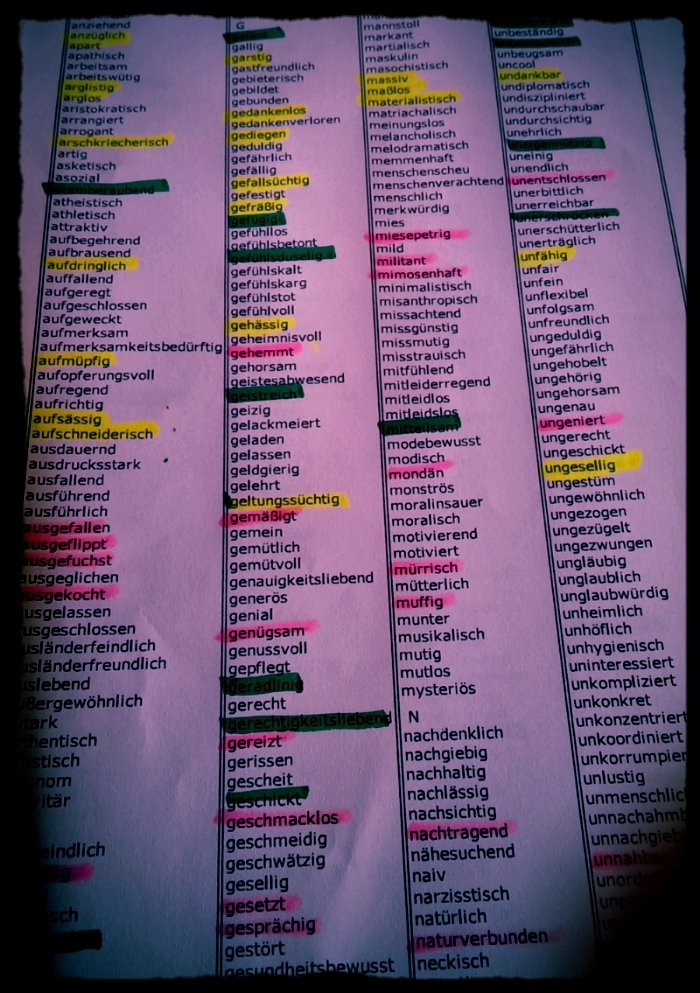 anziehend
anzüglich
apart
apathisch
arbeitsam
arbeitswütig
arglistig
arglos
aristokratisch
arrangiert
arrogant
arschkriecherisch
artig
asketisch
asozial
atemberaubend
atheistisch
athletisch
attraktiv
aufbegehrend
aufbrausend
aufdringlich
auffallend
aufgeregt
aufgeschlossen
aufgeweckt
aufmerksam
aufmerksamkeitsbedürftig
aufmüpfig
aufopferungsvoll
aufregend
aufrichtig
aufsässig
aufschneiderisch
ausdauernd
ausdrucksstark
ausfallend
ausführend
ausführlich
ausgefallen
ausgeflippt
ausgefuchst
ausgeglichen
ausgekocht
usgelassen
usgeschlossen
usländerfeindlich
usländerfreundlich
uslebend
ßergewöhnlich
tark
hentisch
istisch
nom
ritär
eindlich
sch
G
galant
gallig
garstig
gastfreundlich
gebieterisch
gebildet
gebunden
gedankenlos
gedankenverloren
gediegen
geduldig
gefährlich
gefällig
gefallsüchtig
gefestigt
gefräßig
gefügig
gefühllos
gefühlsbetont
gefühlsduselig
gefühlskalt
gefühlskarg
gefühlstot
gefühlvoll
gehässig
geheimnisvoll
gehemmt
gehorsam
geistesabwesend
geistreich
geizig
gelackmeiert
geladen
gelassen
geldgierig
gelehrt
geltungssüchtig
gemäßigt
gemein
gemütlich
gemütvoll
genauigkeitsliebend
generös
genial
genügsam
genussvoll
gepflegt
geradlinig
gerecht
gerechtigkeitsliebend
gereizt
gerissen
gescheit
geschickt
geschmacklos
geschmeidig
geschwätzig
gesellig
gesetzt
gesprächig
gestört
gesundheitsbewusst
mannstoll
markant
martialisch
maskulin
masochistisch
massiv
maßlos
materialistisch
matriachalisch
meinungslos
melancholisch
melodramatisch
memmenhaft
menschenscheu
menschenverachtend
menschlich
merkwürdig
mies
miesepetrig
mild
militant
mimosenhaft
minimalistisch
misanthropisch
missachtend
missgünstig
missmutig
misstrauisch
mitfühlend
mitleiderregend
mitleidlos
mitleidslos
mitteilsam
modebewusst
modisch
mondän
monströs
moralinsauer
moralisch
motivierend
motiviert
mürrisch
mütterlich
muffig
munter
musikalisch
mutig
mutlos
mysteriös
N
nachdenklich
nachgiebig
nachhaltig
nachlässig
nachsichtig
nachtragend
nähesuchend
naiv
narzisstisch
natürlich
naturverbunden
neckisch
unbeständig
unbeugsam
uncool
undankbar
undiplomatisch
undiszipliniert
undurchschaubar
undurchsichtig
unehrlich
uneigennützig
uneinig
unendlich
unentschlossen
unerbittlich
unerreichbar
unerschrocken
unerschütterlich
unerträglich
unfähig
unfair
unfein
unflexibel
unfolgsam
unfreundlich
ungeduldig
ungefährlich
ungehobelt
ungehörig
ungehorsam
ungenau
ungeniert
ungerecht
ungeschickt
ungesellig
ungestüm
ungewöhnlich
ungezogen
ungezügelt
ungezwungen
ungläubig
unglaublich
unglaubwürdig
unheimlich
unhöflich
unhygienisch
uninteressiert
unkompliziert
unkonkret
unkonzentriert
unkoordiniert
unkorrumpier
unlustig
unmenschlic
unnachahm
unnachgieb
unnahb
unord